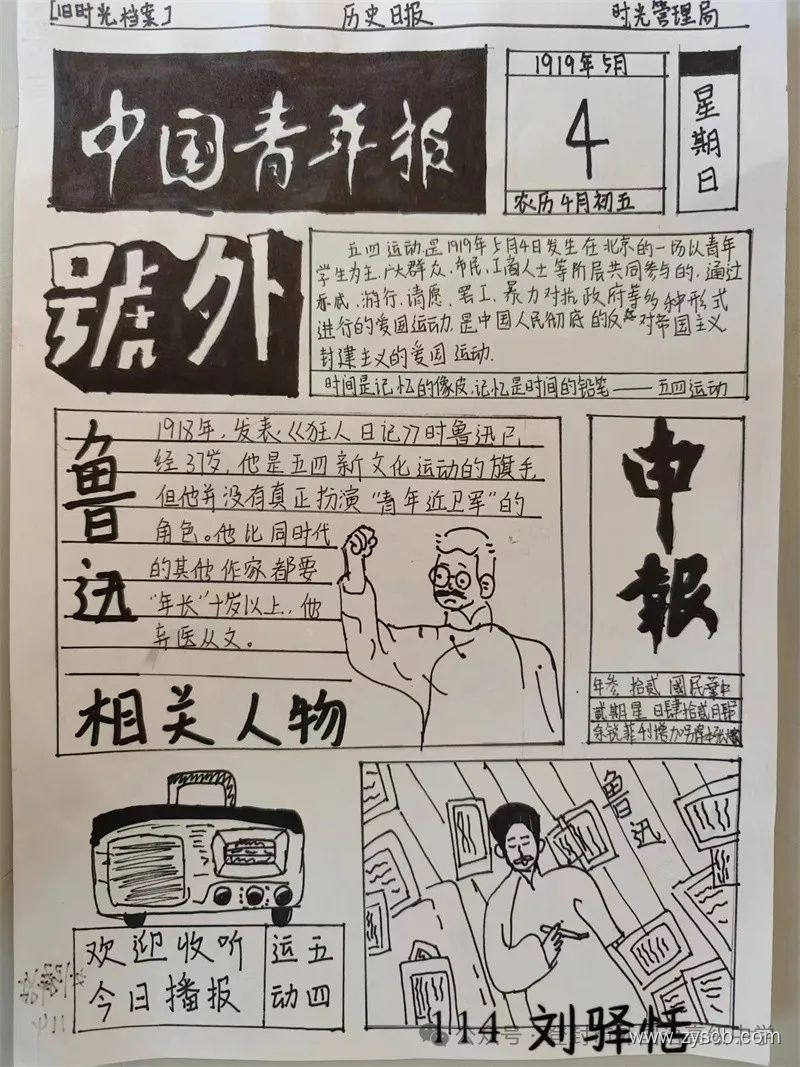 [旧时光档案] 历史日报 时光管理局
中国青年报
1919年5月
4
农历4月初五
星期日
號外
五四运动是1919年5月4日发生在北京的一场以青年
学生为主,广大群众、市民、工商人士等阶层共同参与的,通过
示威、游行、请愿、罢工、暴力对抗政府等多种形式
进行的爱国运动,是中国人民彻底的反对帝国主义
封建主义的爱国运动.
时间是记忆的像皮,记忆是时间的铅笔——五四运动
鲁迅
1918年,发表《狂人日记》时鲁迅已
经37岁,他是五四新文化运动的旗手,
但他并没有真正扮演“青年近卫军”的
角色。他比同时代
的其他作家都要
“年长”十岁以上,他
弃医从文。
相关人物
申報
年叁拾贰國民華中
贰期星日肆拾贰月肆
欢迎收听
今日播报
五四
运动
鲁迅
114 刘驿恬
公众号
www.zyscb.com